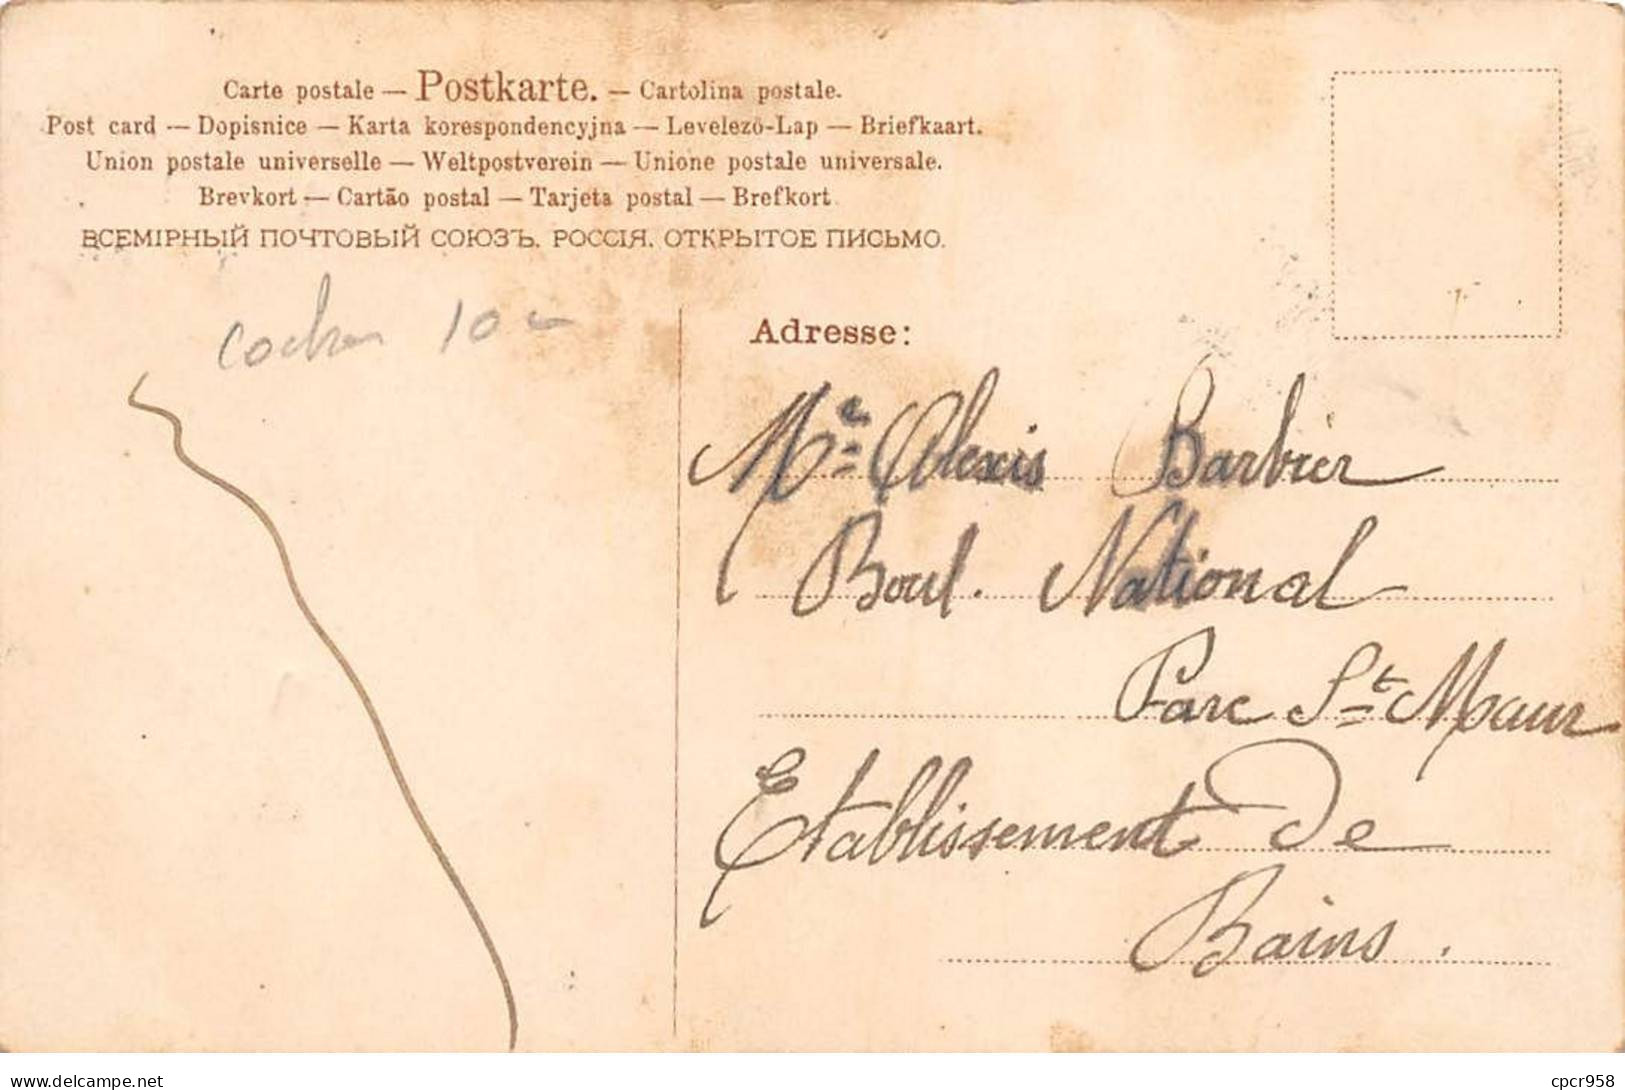 Carte postale — Postkarte. — Cartolina postale.
Post card — Dopisnice — Karta korespondencyjna — Levelező-Lap — Briefkaart.
Union postale universelle — Weltpostverein — Unione postale universale.
Brevkort — Cartão postal — Tarjeta postal — Brefkort
ВСЕМІРНЫЙ ПОЧТОВЫЙ СОЮЗЪ. РОССІЯ. ОТКРЫТОЕ ПИСЬМО.
10
Adresse:
Me Alexis Barbier
Boul. National
Parc St Maur
Etablissement De
Bains.
www.delcampe.net
cpcr958